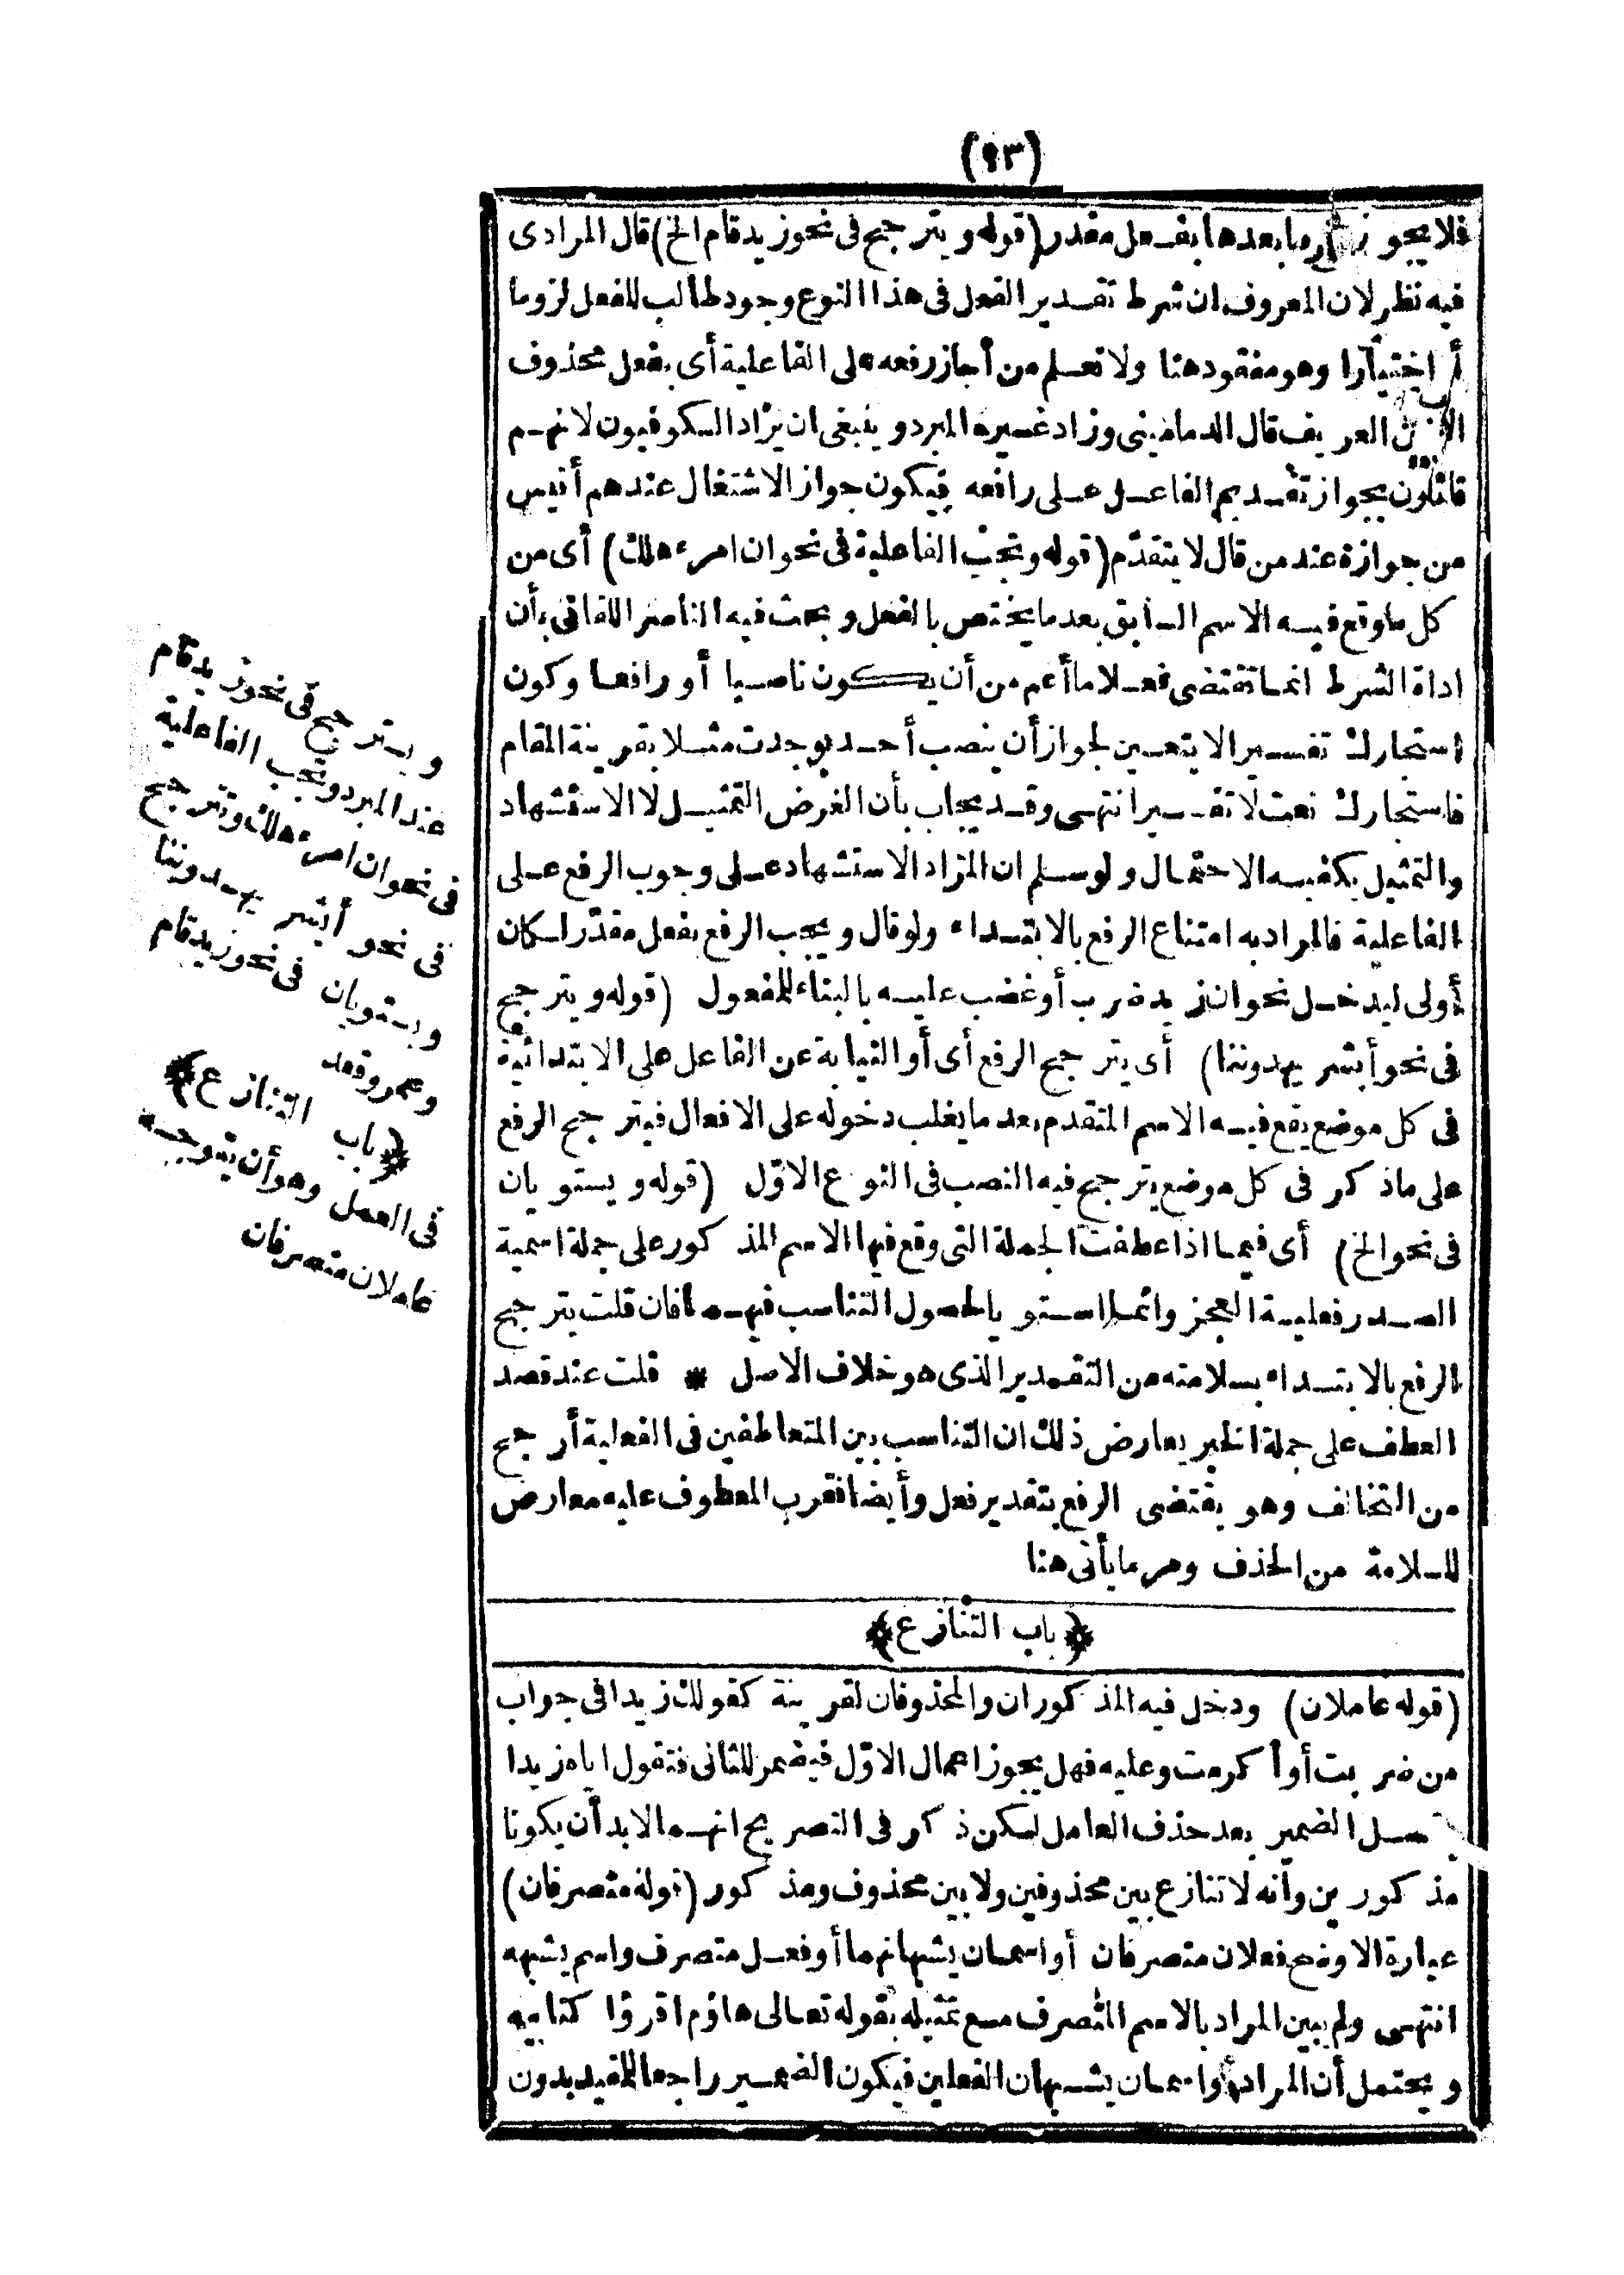 (٩٣)
فلا يجوز ما بعدها بفعل مقدر (قوله ويترجح فى نحو زيد قام الخ) قال المرادى
فيه نظر لان المعروف ان شرط تقدير الفعل فى هذا النوع وجود طالب للفعل لزوما
أ اختيارا وهو مفقود هنا ولا نعلم من أجاز رفعه على الفاعلية أى بفعل محذوف
العريف قال الدمامينى وزاد غيره المبرد وينبغى ان يزاد الكوفيون لانهم
قائلون بجواز تقديم الفاعل على رافعه فيكون جواز الاشتغال عندهم أقيس
من جوازه عند من قال لا يتقدم (قوله وتجب الفاعلية فى نحو ان امرء هلك) أى من
كل ما وقع فيه الاسم السابق بعد ما يختص بالفعل وبحث فيه الناصر اللقانى بأن
اداة الشرط انما تقتضى فعلا ما أعم من أن يكون ناصبا أو رافعا وكون
استجارك تفسيرا لا يتعين لجواز أن ينصب أحد بوجدت مثلا بقرينة المقام
فاستجارك نعت لا تفسير انتهى وقد يجاب بأن الغرض التمثيل لا الاستشهاد
والتمثيل يكفيه الاحتمال ولو سلم ان المراد الاستشهاد على وجوب الرفع على
الفاعلية فالمراد به امتناع الرفع بالابتداء ولو قال ويجب الرفع بفعل مقدّر لكان
أولى ليدخل نحو ان زيد ضرب أو غضب عليه بالبناء للمفعول (قوله ويترجح
فى نحو أبشر يهدوننا) أى يترجح الرفع أى أو النيابة عن الفاعل على الابتدائية
فى كل موضع يقع فيه الاسم المتقدم بعد ما يغلب دخوله على الافعال فيترجح الرفع
على ما ذكر فى كل موضع يترجح فيه النصب فى النوع الاوّل (قوله ويستويان
فى نحو الخ) أى فيما اذا عطفت الجملة التى وقع فيها الاسم المذكور على جملة اسمية
الصدر فعلية العجز وانما استويا لحصول التناسب فيهما فان قلت يترجح
الرفع بالابتداء بسلامته من التقدير الذى هو خلاف الاصل * قلت عند قصد
العطف على جملة الخبر يعارض ذلك ان التناسب بين المتعاطفين فى الفعلية أرجح
من التخالف وهو يقتضى الرفع بتقدير فعل وأيضا فقرب المعطوف عليه معارض
للسلامة من الحذف ومر ما يأتى هنا
﴿باب التنازع﴾
(قوله عاملان) ودخل فيه المذكوران والمحذوفان لقرينة كقولك زيدا فى جواب
من ضربت أو أكرمت وعليه فهل يجوز اعمال الاوّل فيضمر للثانى فتقول اياه زيدا
الضمير بعد حذف العامل لكن ذكر فى التصريح انهما لا بد أن يكونا
مذكورين وأنه لا تنازع بين محذوفين ولا بين محذوف ومذكور (قوله متصرفان)
عبارة الاوضح فعلان متصرفان أو اسمان يشبهانهما أو فعل متصرف واسم يشبهه
انتهى ولم يبين المراد بالاسم المتصرف مع تمثيله بقوله تعالى هاؤم اقرؤا كتابيه
ويحتمل أن المراد أو اسمان يشبهان الفعلين فيكون الضمير راجعا للمقيد بدون
ويترجح فى نحو زيد قام
عند المبرد وتجب الفاعلية
فى نحو ان امرء هلك وتترجح
فى نحو أبشر يهدوننا
ويستويان فى نحو زيد قام
وعمرو قعد
﴿باب التنازع﴾
فى العمل وهو أن يتوجه
عاملان متصرفان